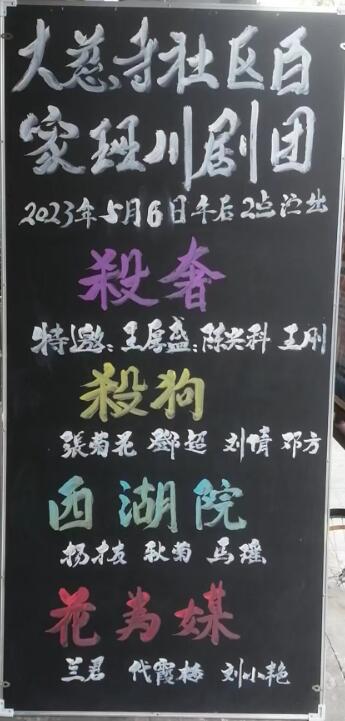 大慈寺社区百
家班川剧团
2023年5月6日午后2点演出
殺奢
特邀:王厚盛:陈兴科 王刚
殺狗
張菊花 鄧超 刘倩 邓方
西湖院
杨友 耿菊 马瑶
花为媒
兰君 代霞梅 刘小艳